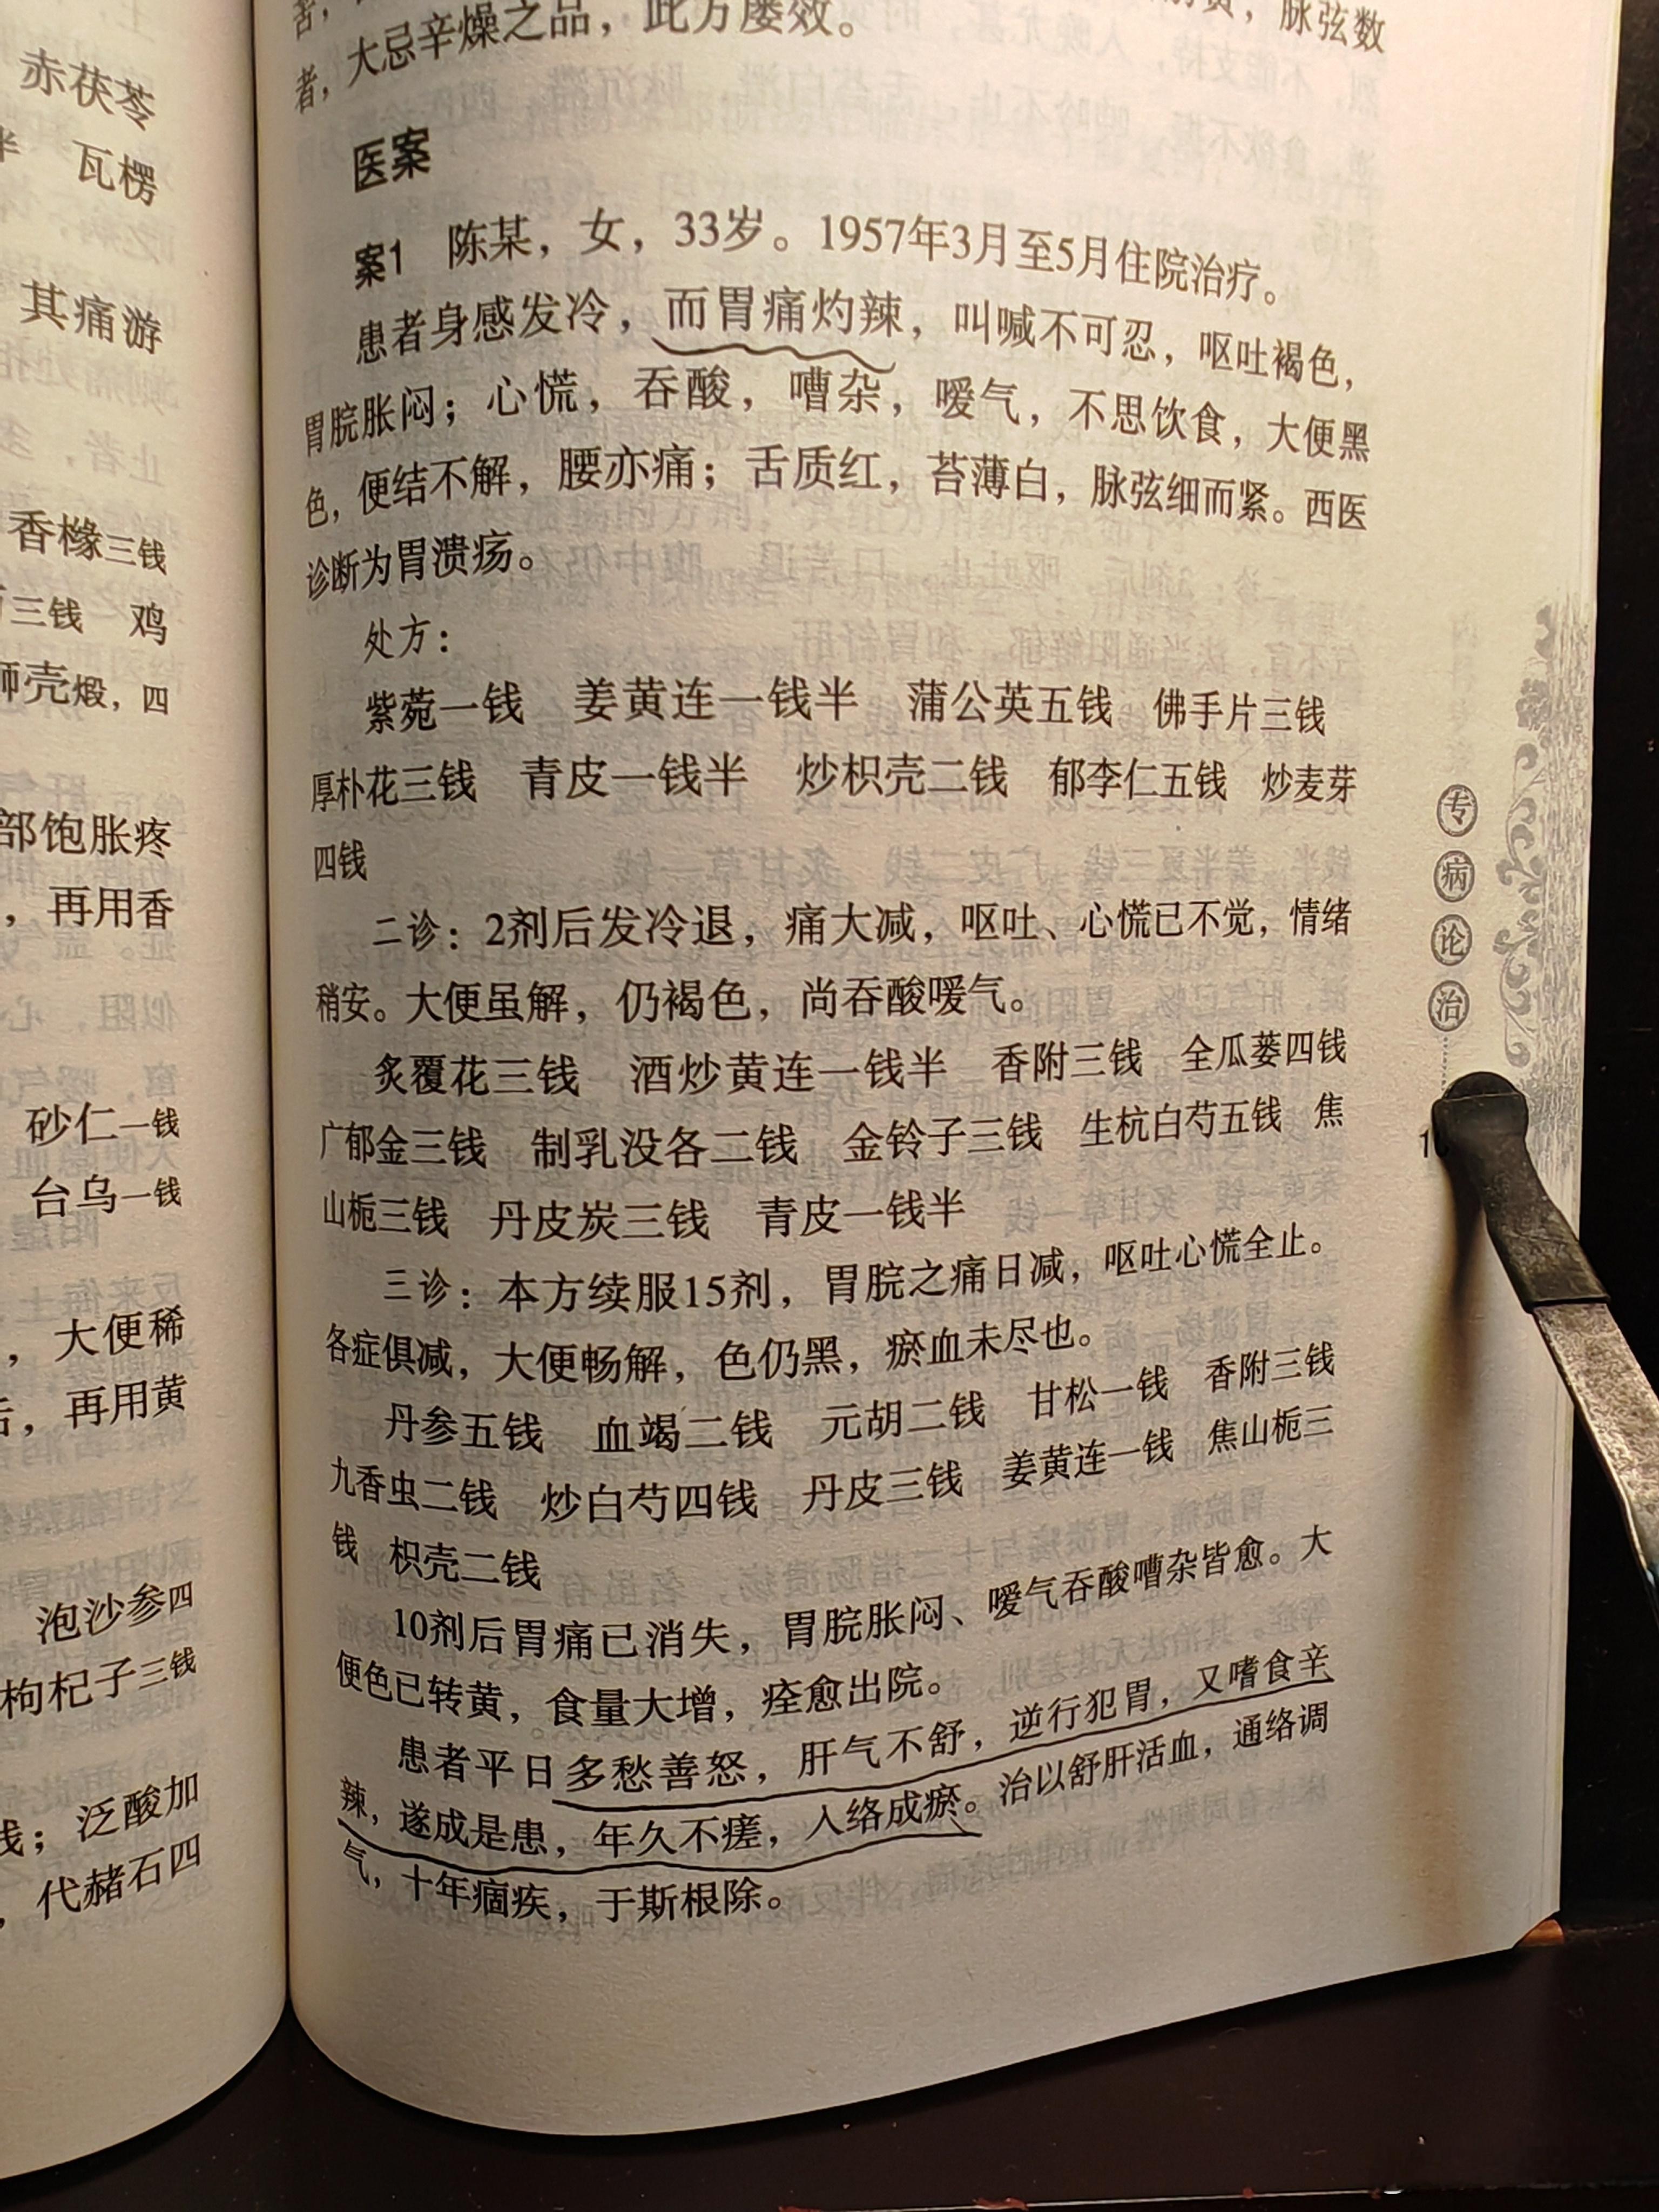 赤茯苓
瓦楞
其痛游
香橼三钱
三钱 鸡
壳煅，四
部饱胀疼
，再用香
砂仁一钱
台乌一钱
，大便稀
，再用黄
泡沙参四
枸杞子三钱
钱；泛酸加
，代赭石四
脉弦数
者，大忌辛燥之品，此方屡效。
医案
案1 陈某，女，33岁。1957年3月至5月住院治疗。
患者身感发冷，而胃痛灼辣，叫喊不可忍，呕吐褐色，
胃脘胀闷；心慌，吞酸，嘈杂，嗳气，不思饮食，大便黑
色，便结不解，腰亦痛；舌质红，苔薄白，脉弦细而紧。西医
诊断为胃溃疡。
处方：
紫菀一钱 姜黄连一钱半 蒲公英五钱 佛手片三钱
厚朴花三钱 青皮一钱半 炒枳壳二钱 郁李仁五钱 炒麦芽
四钱
二诊：2剂后发冷退，痛大减，呕吐、心慌已不觉，情绪
稍安。大便虽解，仍褐色，尚吞酸嗳气。
炙覆花三钱 酒炒黄连一钱半 香附三钱 全瓜蒌四钱
广郁金三钱 制乳没各二钱 金铃子三钱 生杭白芍五钱 焦
山栀三钱 丹皮炭三钱 青皮一钱半
三诊：本方续服15剂，胃脘之痛日减，呕吐心慌全止。
各症俱减，大便畅解，色仍黑，瘀血未尽也。
丹参五钱 血竭二钱 元胡二钱 甘松一钱 香附三钱
九香虫二钱 炒白芍四钱 丹皮三钱 姜黄连一钱 焦山栀三
钱 枳壳二钱
10剂后胃痛已消失，胃脘胀闷、嗳气吞酸嘈杂皆愈。大
便色已转黄，食量大增，痊愈出院。
患者平日多愁善怒，肝气不舒，逆行犯胃，又嗜食辛
辣，遂成是患，年久不瘥，入络成瘀。治以舒肝活血，通络调
气，十年痼疾，于斯根除。
专病论治